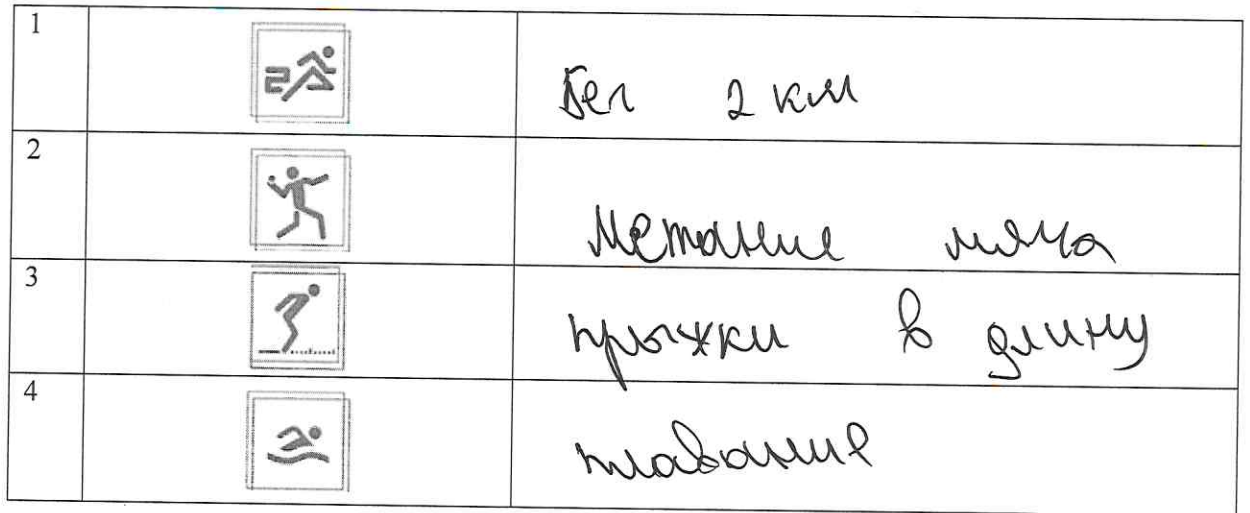 1
Бег 2 км
2
Метание мяча
3
прыжки в длину
4
плавание